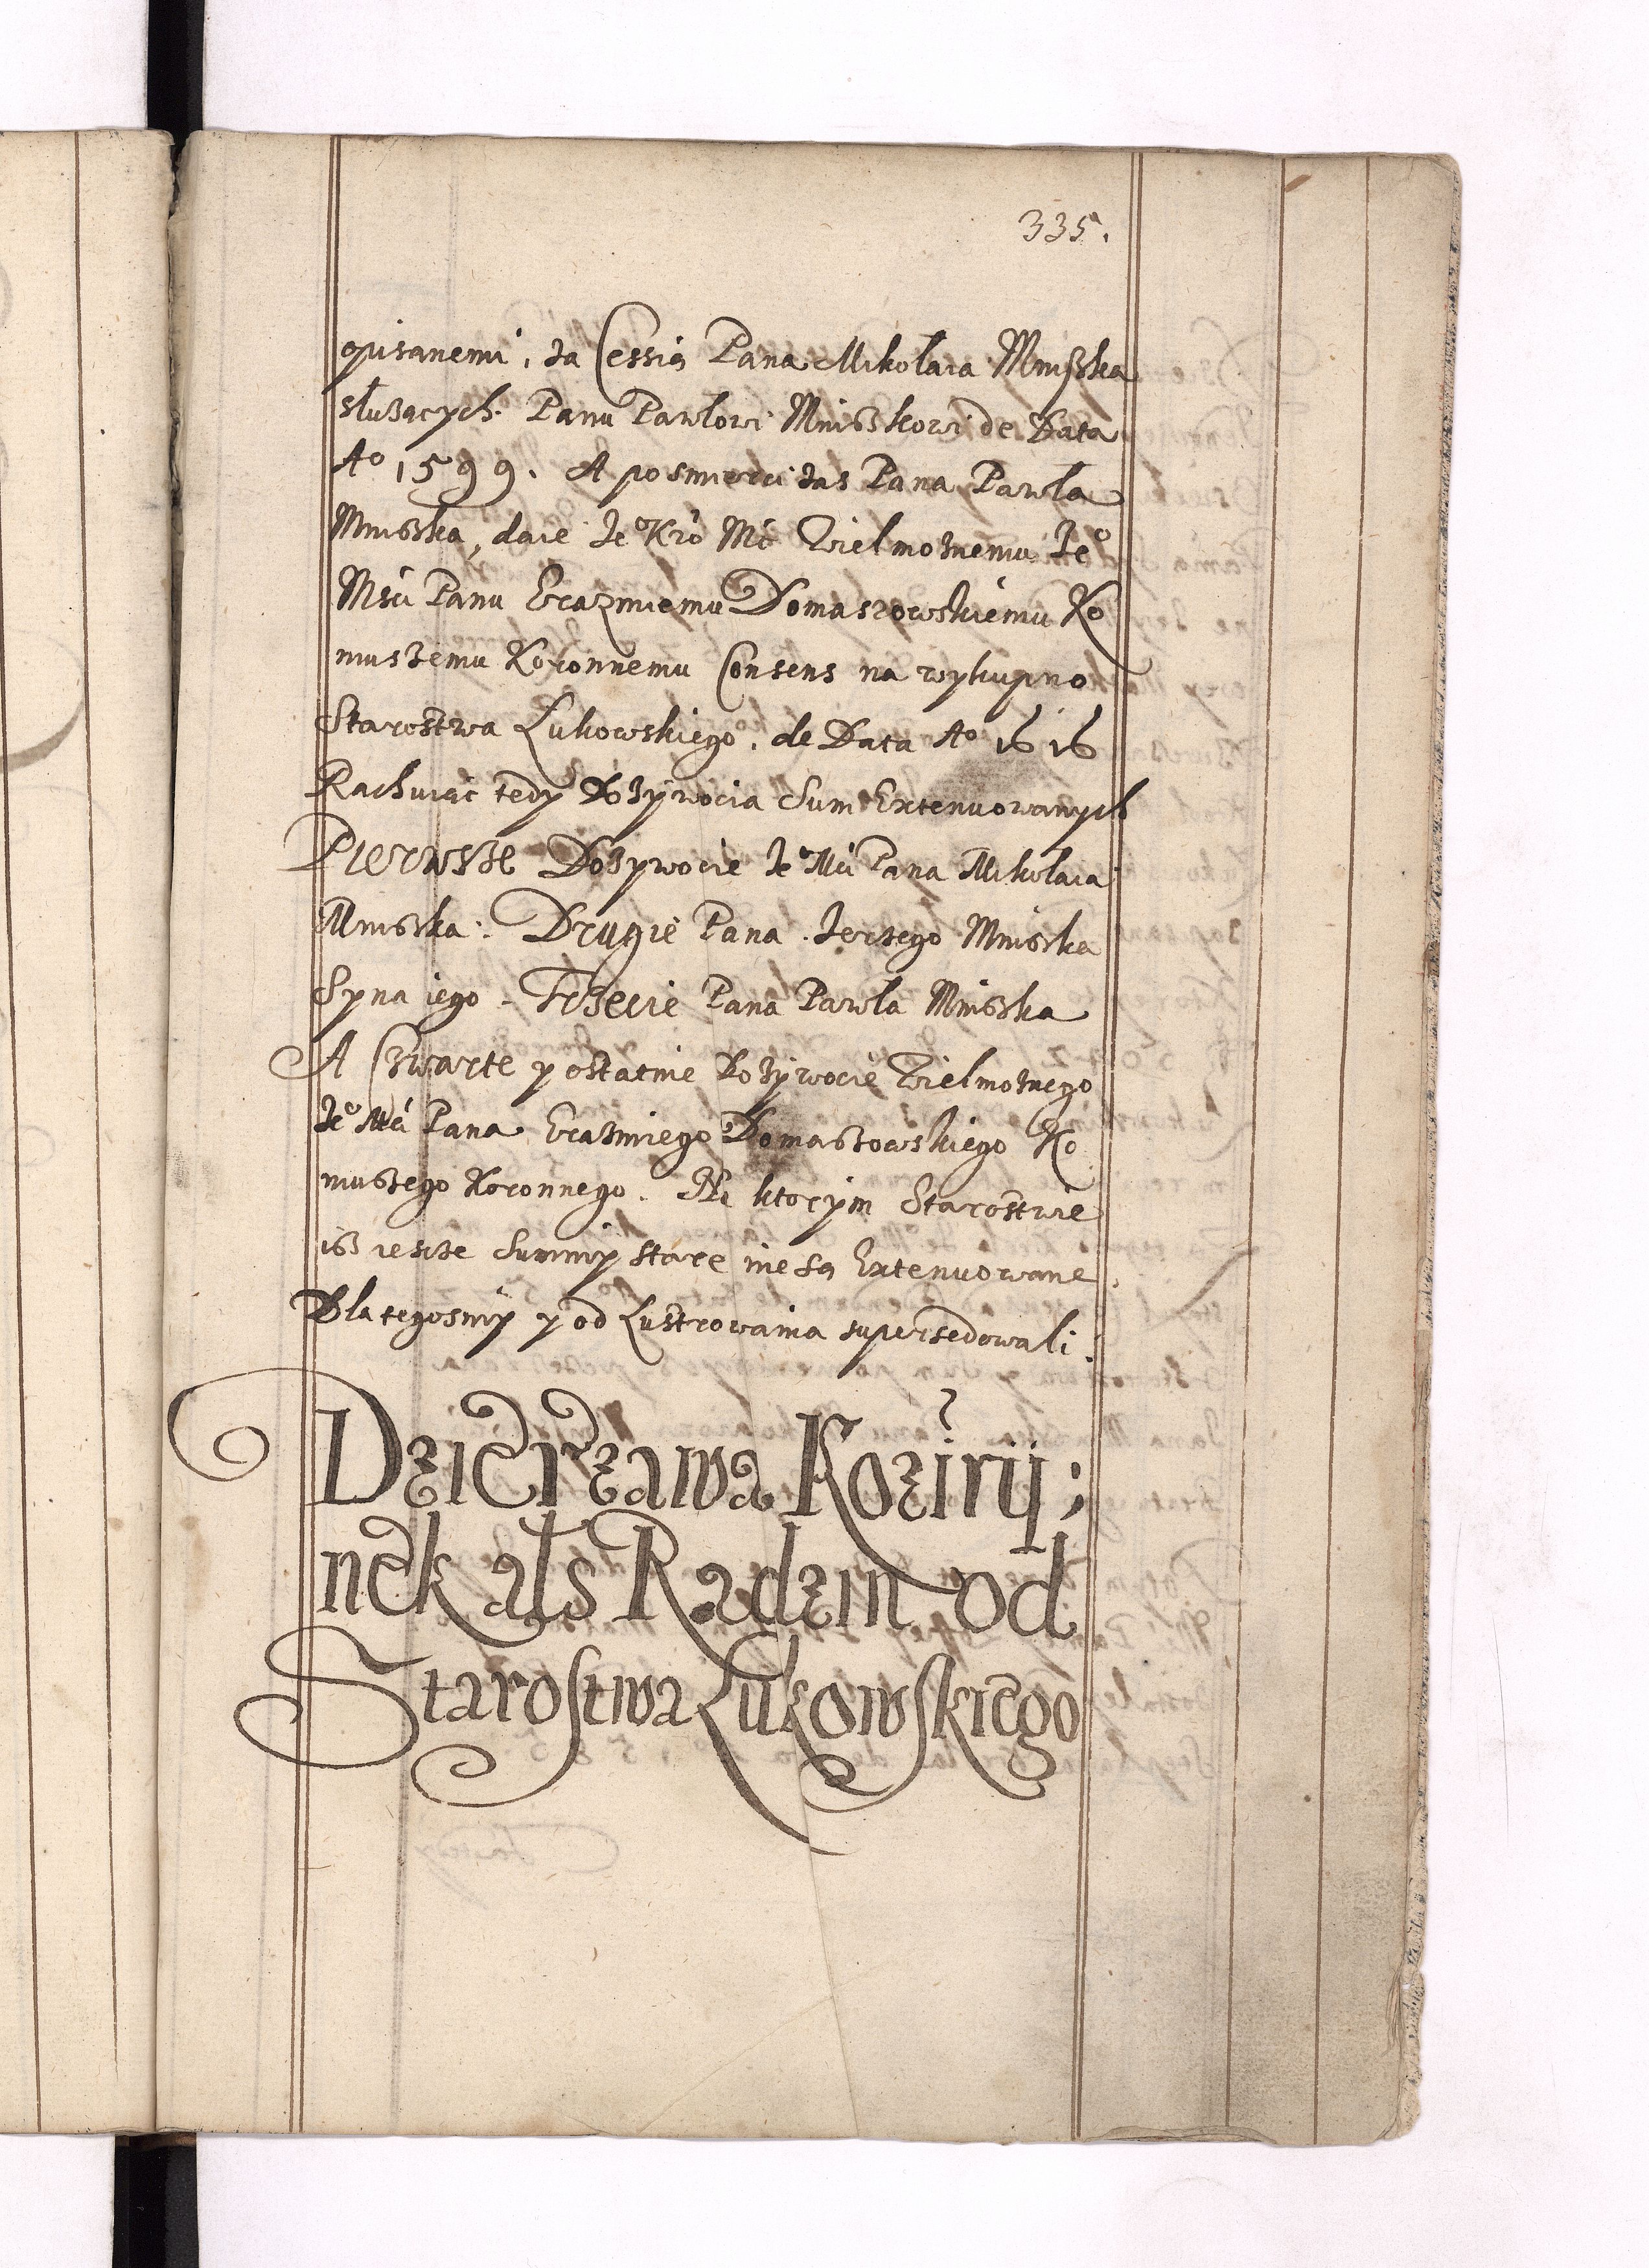 335.
opisanemi, za Cessią Pana Mikolaia Mniszka
służących Panu Pawłowi Mniszkowi de Data
Aº 1599. A po smierci zas Pana Pawla
Mniszka, daie Jeº Krò Mć Wielmoznemu Jeº
Mści Panu Erazmiemu Domaszowskiemu Ko
niuszemu Koronnemu Consens na wykupno
Starostwa Łukowskiego, de Data Aº 1616
Rachuiąc tedy Dożywocia Sum Extenuowanych
Pierwsze Dożywocie Jeº Mći Pana Mikolaia
Mniszka: Drugie Pana Jerzego Mniszka
Syna iego - Trzecie Pana Pawla Mniszka
A Czwarte y ostatnie Dożywocie Wielmoznego
Jeº Mći Pana Erazmiego Domaszowskiego Ko
niuszego Koronnego. Na ktorym Starostwie
isz ieszcze Summy stare nie są Extenuowane,
Dla tegosmy y od Lustrowania supersedowali.
Dzierzawa Kozirÿ;
nek als Radzin od
Starostwa Łukowskiego